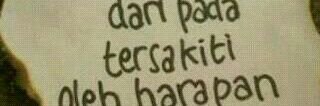 dari pada
tersakiti
oleh harapan